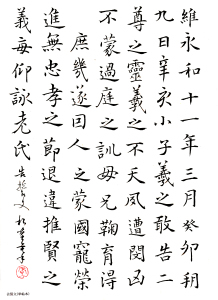 維永和十一年三月癸卯朔
九日辛亥小子羲之敢告二
尊之靈羲之不天夙遭閔凶
不蒙過庭之訓母兄鞠育得
庶幾遂因人之蒙國寵榮
進無忠孝之節退違推賢之
義每仰詠老氏